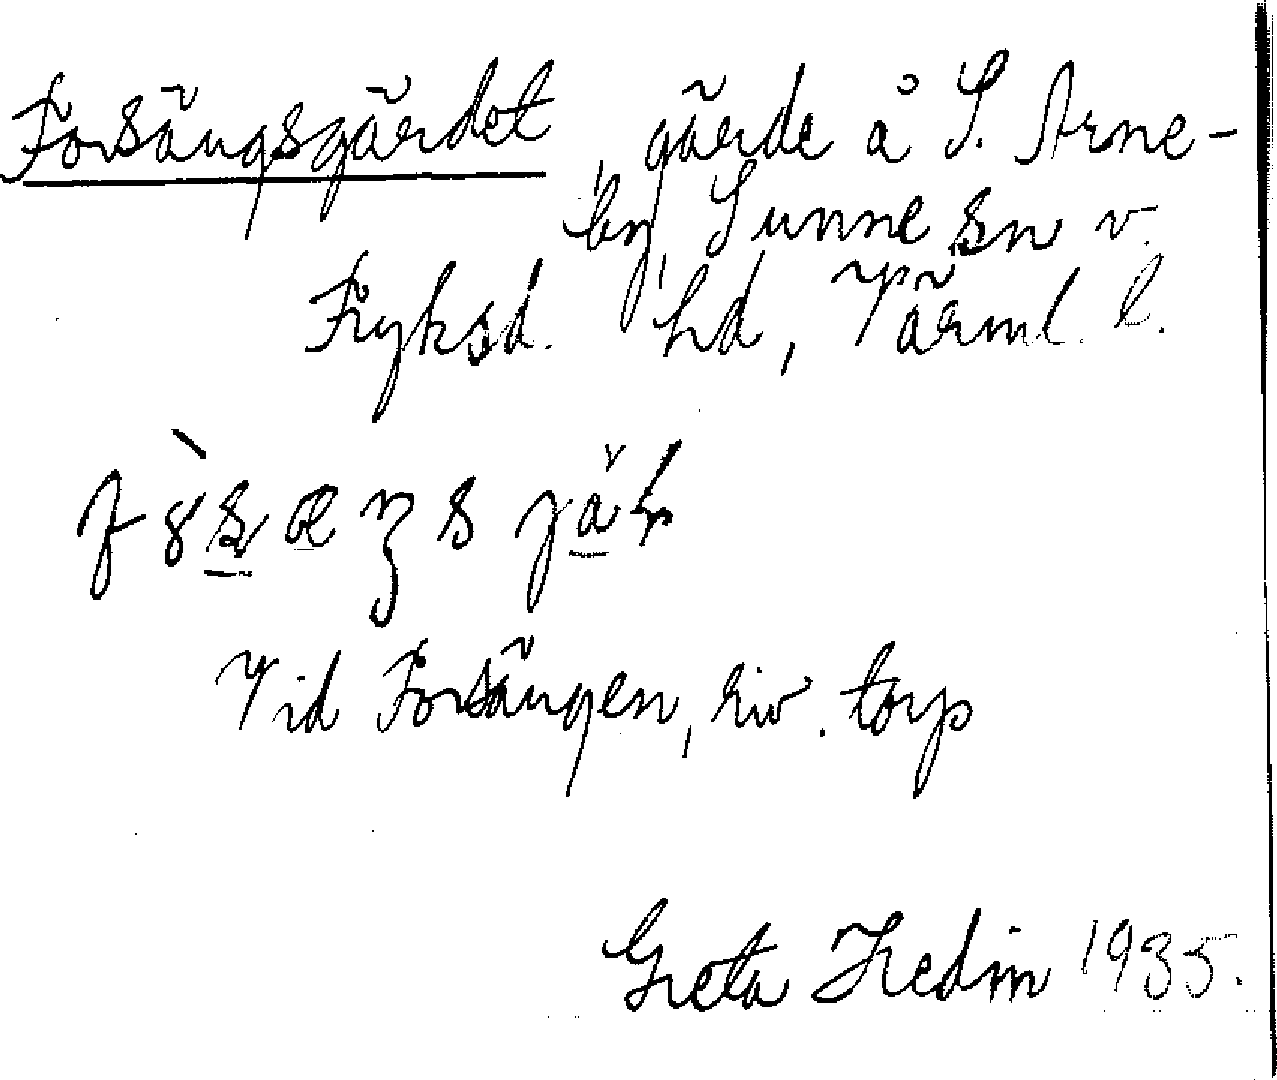 Forsängsgärdet, gärde å S. Arne-
by, Sunne sn v.
Fryksd. hd, Värml. l.
Vid Forsängen, riv. torp
Greta Hedin 1935.